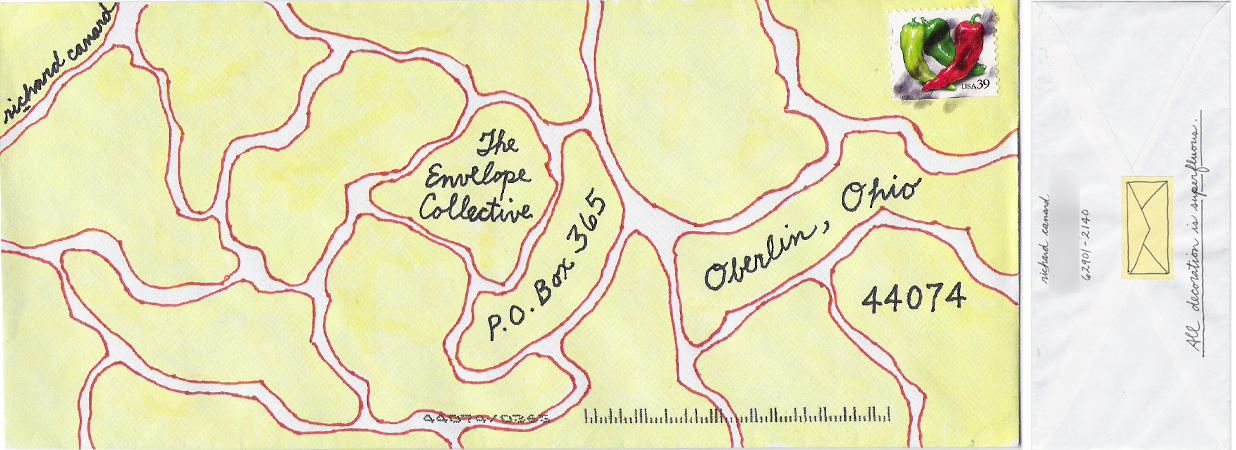 richard canard
USA 39
The
Envelope
Collective
P.O. Box 365
Oberlin, Ohio
44074
44074/0365
richard canard
62901-2140
All decoration is superfluous.